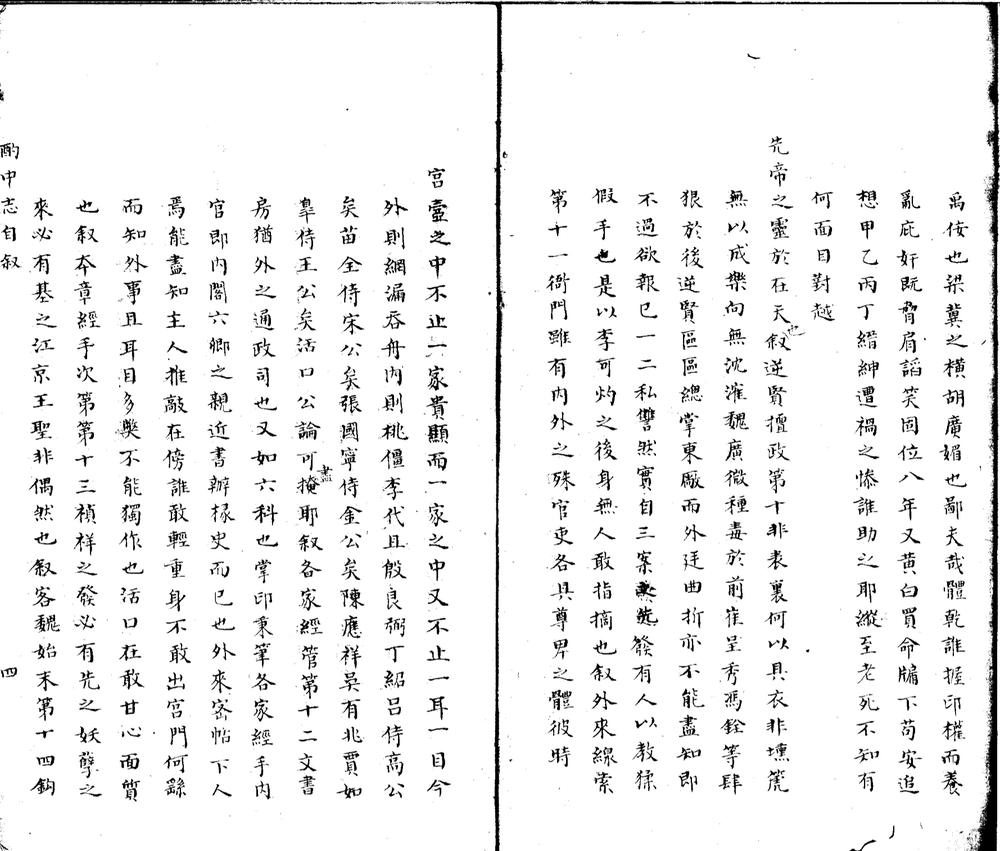 禹侒也梁冀之橫胡廣媚也鄙夫哉體乾誰握印權而養
亂庇奸既脅肩謟笑固位八年又黃白買命牖下苟安追
想甲乙丙丁縉紳遭禍之慘誰助之耶縱至老死不知有
何面目對越
先帝之靈於在天也叙逆賢擅政第十非表裏何以具衣非壎箎
無以成樂向無沈㴶魏廣微種毒於前崔呈秀馮銓等肆
狠於後逆賢區區總掌東厰而外廷曲折亦不能盡知即
不過欲報已一二私讐然實自三案發有人以教猱
假手也是以李可灼之後身無人敢指摘也叙外來線索
第十一衙門雖有內外之殊官吏各具尊卑之體彼時
宮壼之中不止一家貴顯而一家之中又不止一耳一目今
外則網漏吞舟內則桃僵李代且殷良弼丁紹吕侍高公
矣苗全侍宋公矣張國寧侍金公矣陳應祥吳有兆賈如
臯侍王公矣活口公論可盡掩耶叙各家經管第十二文書
房猶外之通政司也又如六科也掌印秉筆各家經手內
官即內閣六卿之親近書辦椽史而已也外來密帖下人
焉能盡知主人推敲在傍誰敢輕重身不敢出宮門何繇
而知外事且耳目多弊不能獨作也活口在敢甘心面質
也叙本章經手次第第十三禎祥之發必有先之妖孽之
來必有基之江京王聖非偶然也叙客魏始末第十四鈎
酌中志自叙
四